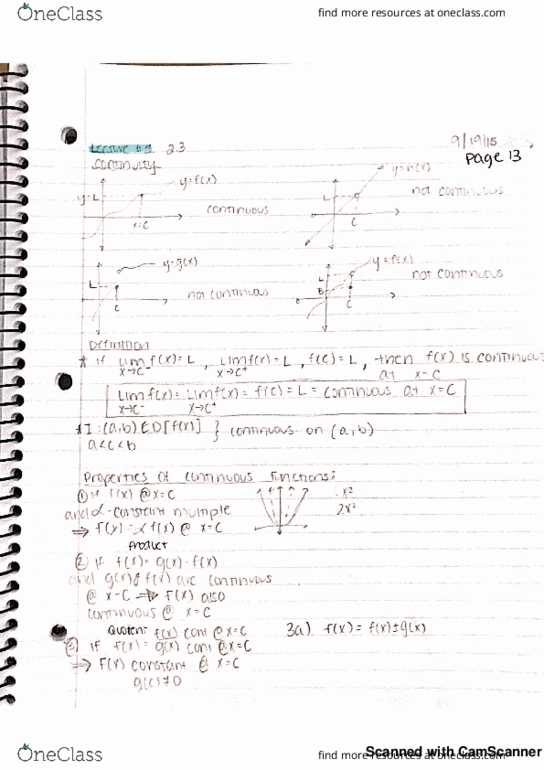 OneClass
find more resources at oneclass.com
Lecture #9 2.3
9/19/15
page 13
Continuity
y=f(x)
y=L
x=c
continuous
y=h(x)
L
c
not continuous
y=g(x)
L
c
not continuous
y=f(x)
L
B
c
not continuous
Definition
* if lim f(x)=L , lim f(x)=L , f(c)=L , then f(x) is continuous
x→c⁻ x→c⁺ at x=c
lim f(x)= lim f(x)= f(c)=L = continuous at x=c
x→c⁻ x→c⁺
*I:(a,b)∈D[f(x)] } continuous on (a,b)
a<c<b
Properties of continuous functions:
① if f(x) @ x=c
and α-constant multiple
⇒ F(x)=αf(x) @ x=c
x²
2x²
product
② if F(x)= g(x)·f(x)
and g(x) & f(x) are continuous
@ x=c ⇒ F(x) also
continuous @ x=c
Quotient f(x) cont @ x=c
③ if F(x)= g(x) cont @ x=c
⇒ F(x) constant @ x=c
g(c)≠0
3a) F(x)= f(x)±g(x)
Scanned with CamScanner
OneClass
find more resources at oneclass.com